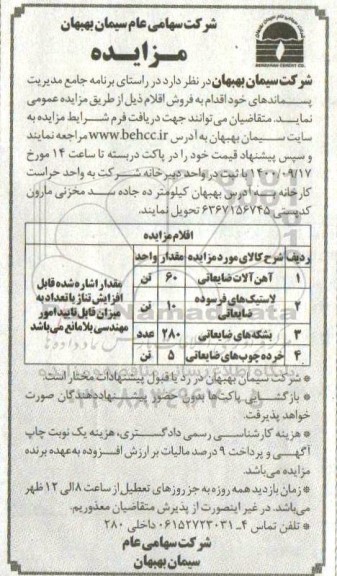 شرکت سهامی عام سیمان بهبهان
مزایده
BEHBAHAN CEMENT CO.
شرکت سیمان بهبهان در نظر دارد در راستای برنامه جامع مدیریت
پسماندهای خود اقدام به فروش اقلام ذیل از طریق مزایده عمومی
نماید. متقاضیان می‌توانند جهت دریافت فرم شرایط مزایده به
سایت سیمان بهبهان به آدرس www.behcc.ir مراجعه نمایند
و سپس پیشنهاد قیمت خود را در پاکت دربسته تا ساعت ۱۴ مورخ
۱۴۰۰/۰۹/۱۷ با ثبت در واحد دبیرخانه شرکت به واحد حراست
کارخانه به آدرس بهبهان کیلومتر ده جاده سد مخزنی مارون
کدپستی ۶۳۶۷۱۵۶۷۴۵ تحویل نمایند.
اقلام مزایده
ردیف شرح کالای مورد مزایده مقدار واحد
۱ آهن‌آلات ضایعاتی ۶۰ تن
۲ لاستیک‌های فرسوده ضایعاتی ۱۰ تن
۳ بشکه‌های ضایعاتی ۲۸۰ عدد
۴ خرده چوب‌های ضایعاتی ۵ تن
مقدار اشاره شده قابل
افزایش تناژ یا تعداد به
میزان قابل تایید امور
مهندسی بلامانع می‌باشد
* شرکت سیمان بهبهان در رد یا قبول پیشنهادات مختار است.
* بازگشایی پاکت‌ها بدون حضور پیشنهاددهندگان صورت
خواهد پذیرفت.
* هزینه کارشناسی رسمی دادگستری، هزینه یک نوبت چاپ
آگهی و پرداخت ۹ درصد مالیات بر ارزش افزوده به عهده برنده
مزایده می‌باشد.
* زمان بازدید همه روزه به جز روزهای تعطیل از ساعت ۸ الی ۱۲ ظهر
می‌باشد. در غیر اینصورت از پذیرش متقاضیان معذوریم.
* تلفن تماس ۴ـ ۰۶۱۵۲۷۲۳۰۳۱ داخلی ۲۸۰
شرکت سهامی عام
سیمان بهبهان